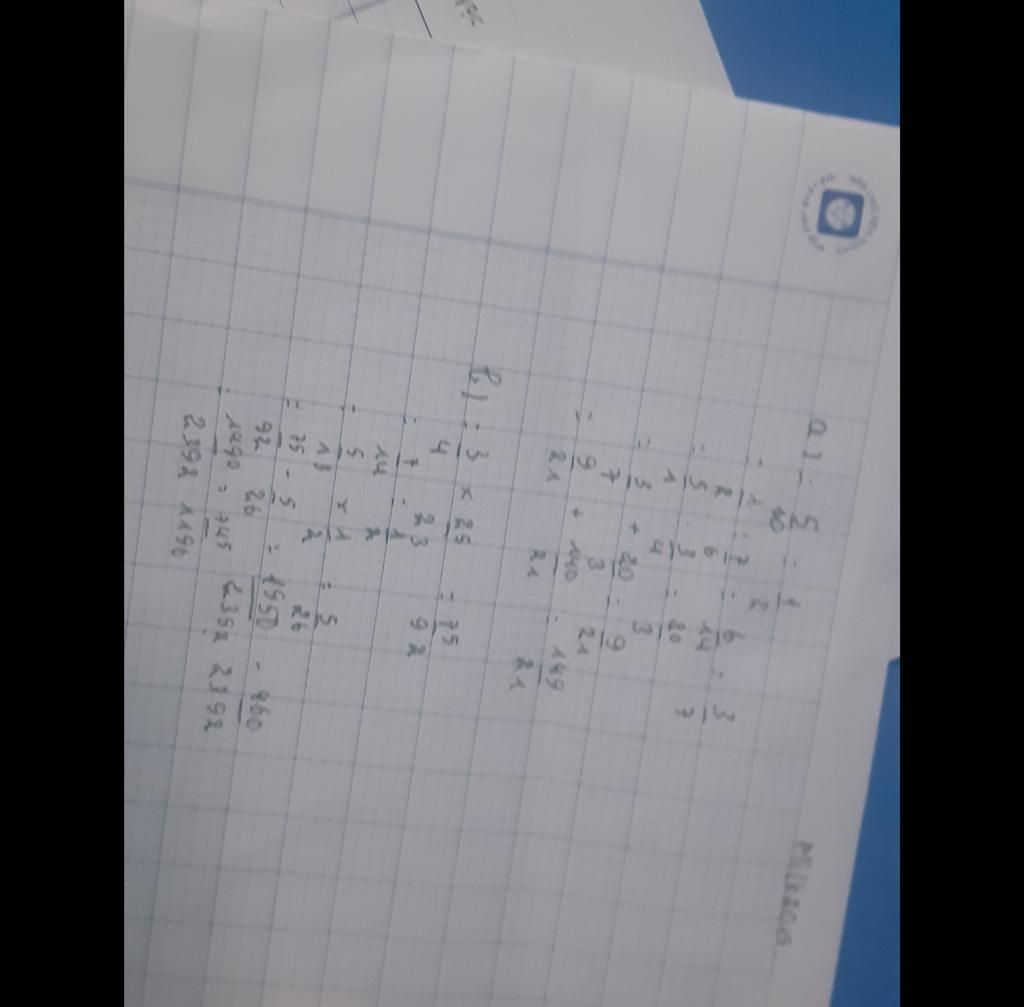 a) = 5/10 = 1/2
= 1/2 : 7/6 = 6/14 = 3/7
= 5/1 : 3/4 = 20/3
= 3/7 + 20/3 = 9/21
= 9/21 + 140/21 = 149/21
b) = 3/4 × 25/23 = 75/92
= 7/14 = 1/2
= 5/13 × 1/2 = 5/26
= 75/92 - 5/26 = 1950/2392 - 460/2392
= 1490/2392 = 745/1196